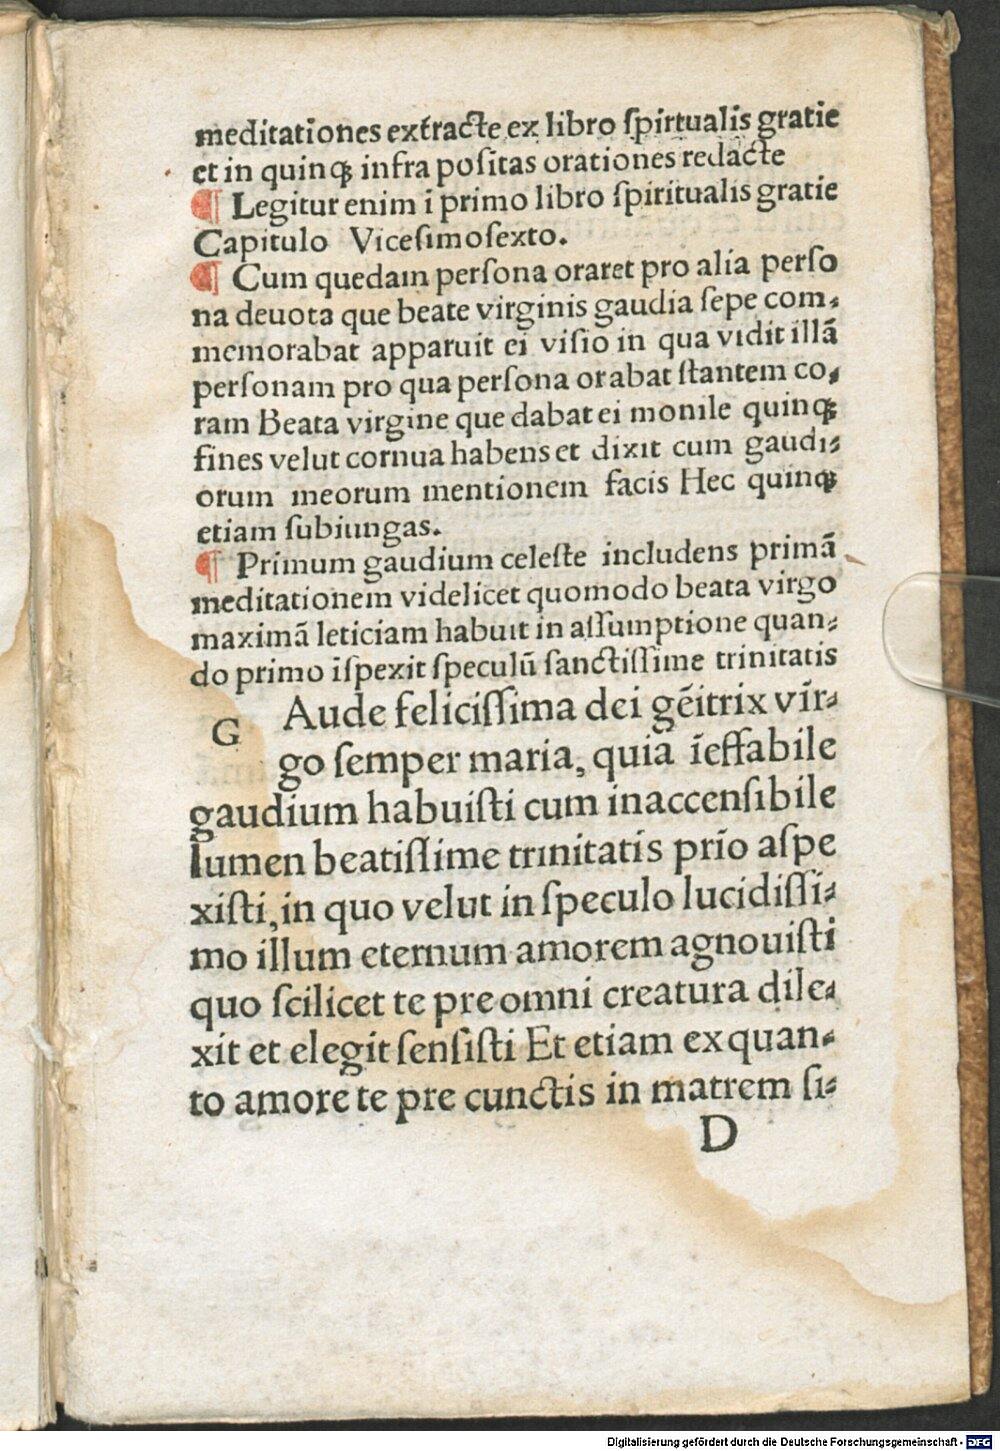 meditationes extracte ex libro ſpirtualis gratie
et in quinqꝫ infra poſitas orationes redacte
¶ Legitur enim ī primo libro ſpiritualis gratie
Capitulo Viceſimoſexto.
¶ Cum quedam perſona oraret pro alia perſo
na deuota que beate virginis gaudia ſepe com⸗
memorabat apparuit ei viſio in qua vidit illā
perſonam pro qua perſona orabat ſtantem co⸗
ram Beata virgine que dabat ei monile quinqꝫ
fines velut cornua habens et dixit cum gaudi⸗
orum meorum mentionem facis Hec quinqꝫ
etiam ſubiungas.
¶ Primum gaudium celeſte includens primā
meditationem videlicet quomodo beata virgo
maximā leticiam habuit in aſſumptione quan⸗
do primo īſpexit ſpeculū ſanctiſſime trinitatis
G Aude feliciſſima dei gēitrix vir⸗
go ſemper maria, quia īeffabile
gaudium habuiſti cum inaccenſibile
lumen beatiſſime trinitatis prīo aſpe
xiſti, in quo velut in ſpeculo lucidiſſi⸗
mo illum eternum amorem agnouiſti
quo ſcilicet te pre omni creatura dile⸗
xit et elegit ſenſiſti Et etiam ex quan⸗
to amore te pre cunctis in matrem ſi⸗
D
Digitalisierung gefördert durch die Deutsche Forschungsgemeinschaft - DFG